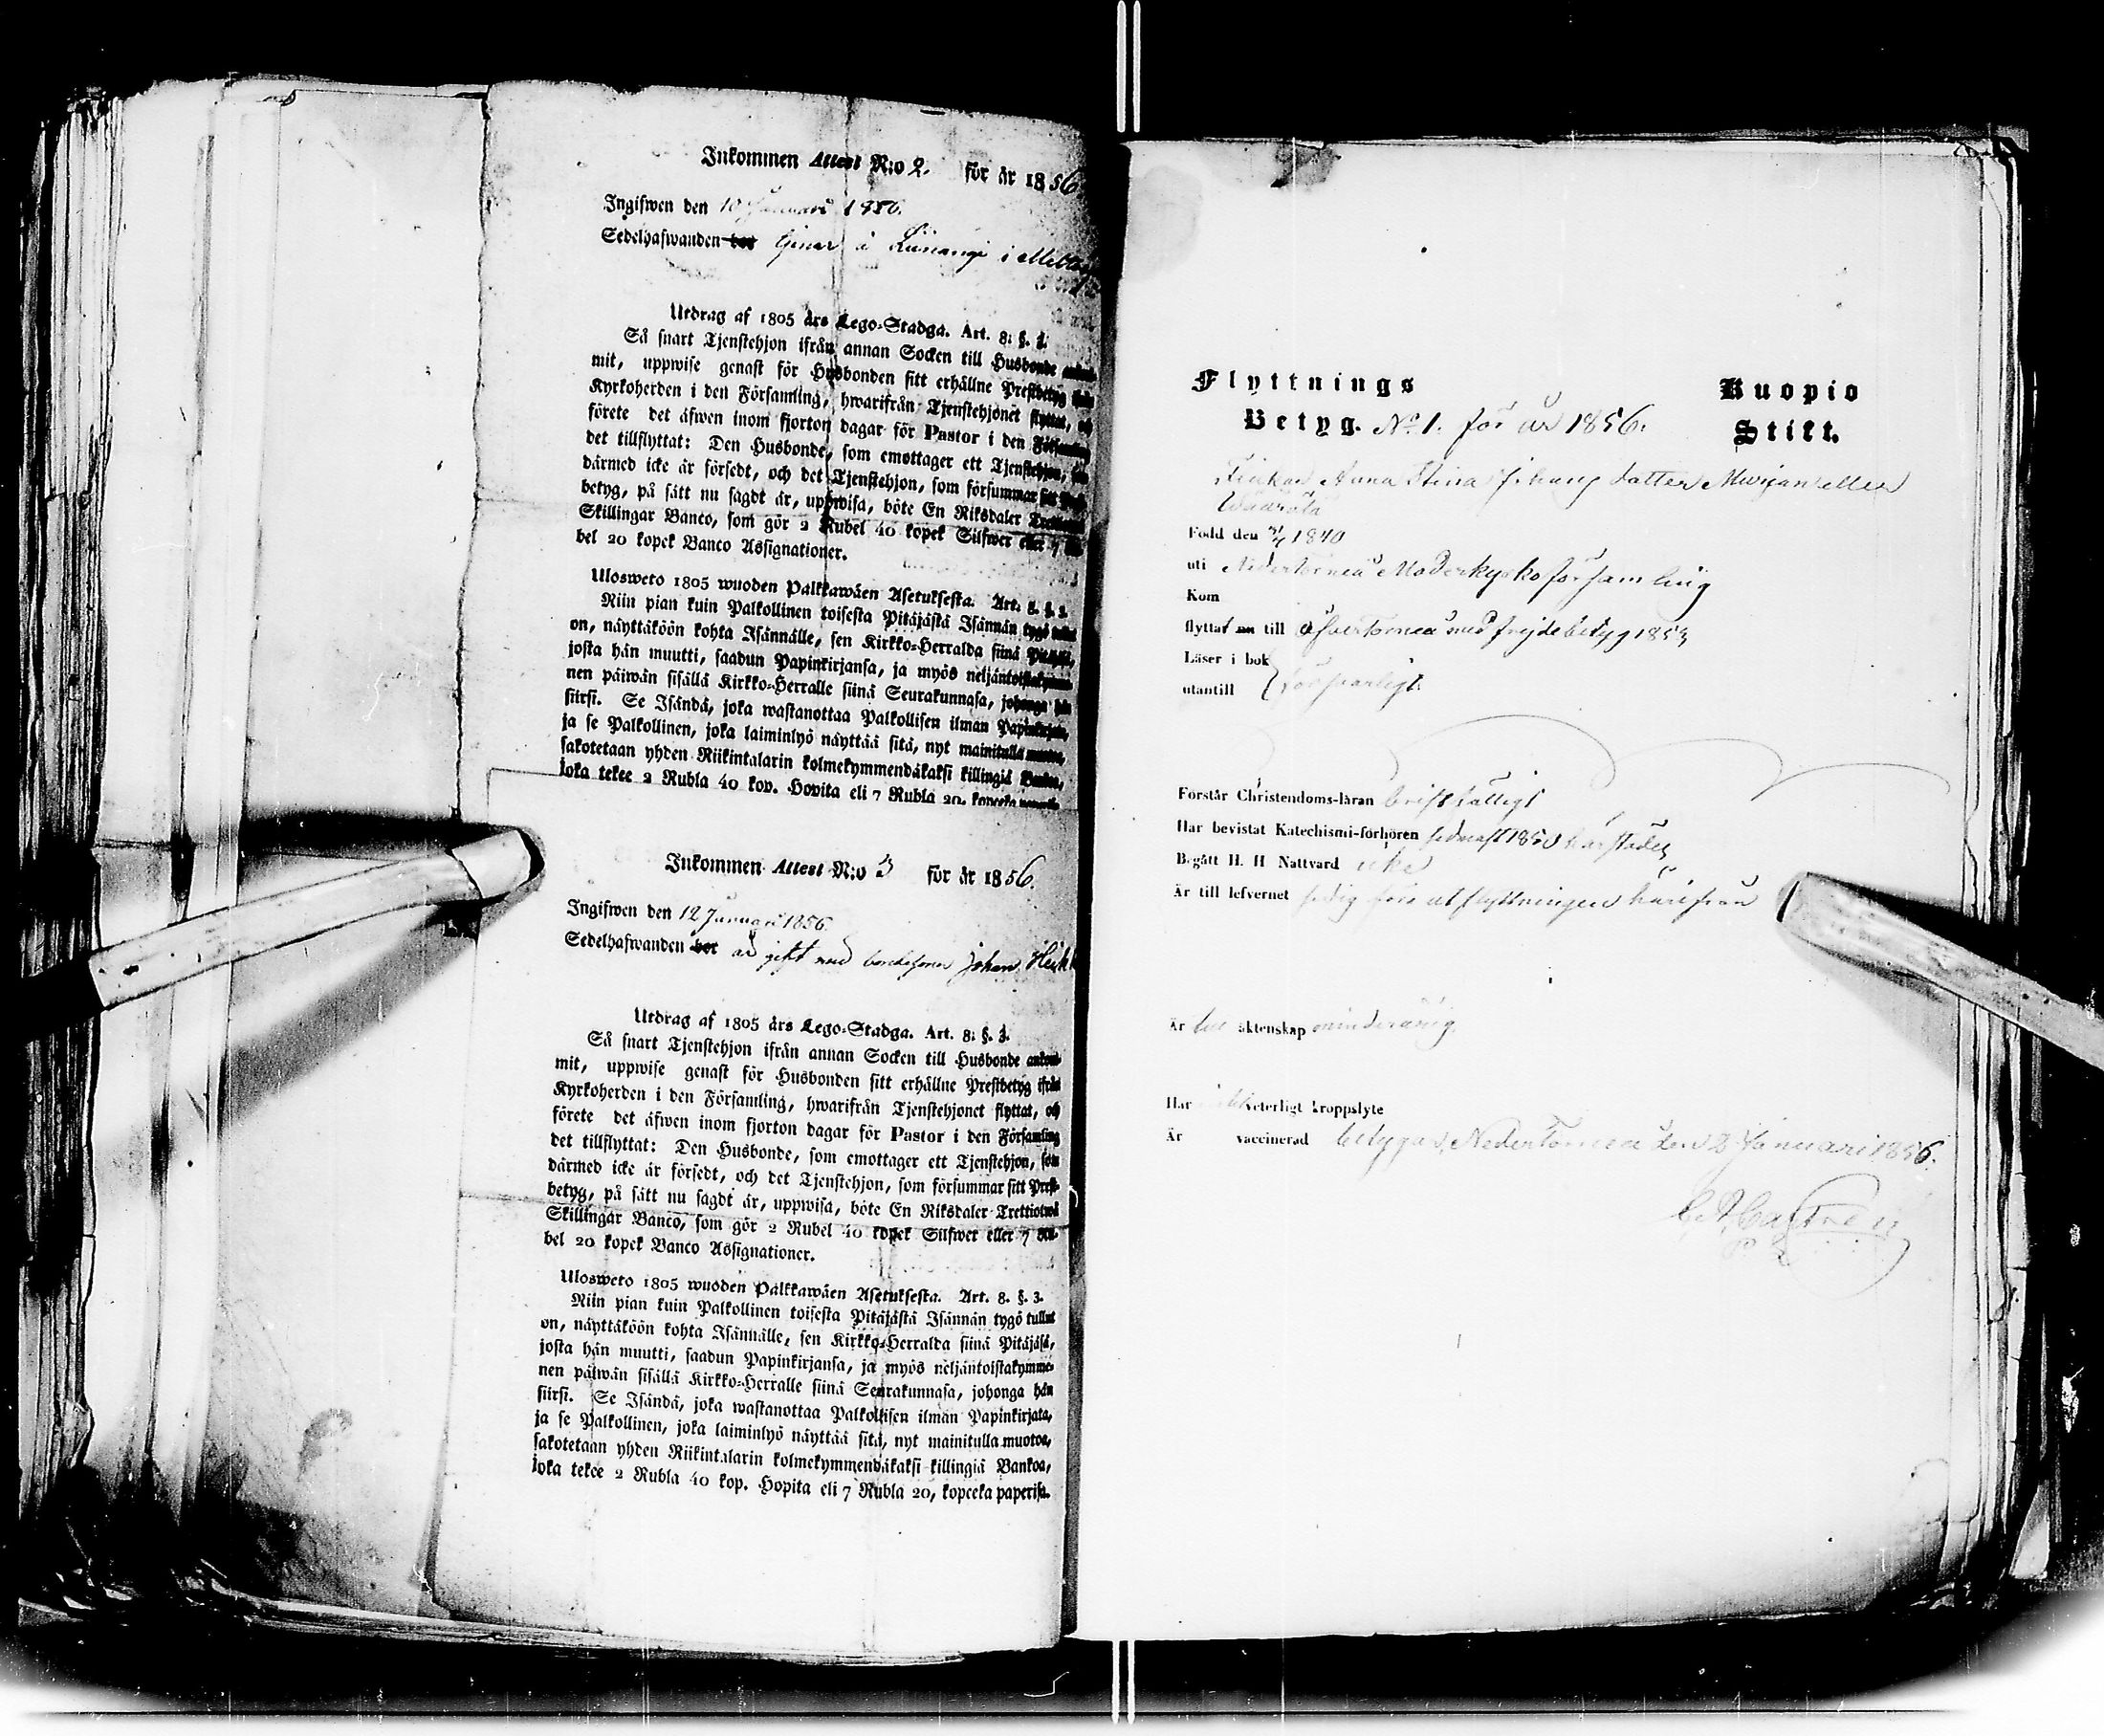 Inkommen Attest N:o 2. för år 1856
Ingifwen den 10 Januari 1856.
Sedelhafwanden bor tjenar å i
Utdrag af 1805 års Lego-Stadga. Art. 8: §. 3.
Så snart Tjenstehjon ifrån annan Socken till Husbonde ankom-
mit, uppwise genast för Husbonden sitt erhållne Prestbetyg ifrån
Kyrkoherden i den Församling, hwarifrån Tjenstehjonet flyttat, och
förete det äfwen inom fjorton dagar för Pastor i den Församling
det tillflyttat: Den Husbonde, som emottager ett Tjenstehjon, som
därmed icke är försedt, och det Tjenstehjon, som försummar sitt Prest-
betyg, på sätt nu sagdt är, uppwisa, böte En Riksdaler Trettiotwå
Skillingar Banco, som gör 2 Rubel 40 kopek Silfwer eller 7 Ru-
bel 20 kopek Banco Assignationer.
Ulosweto 1805 wuoden Palkkawäen Asetuksesta. Art. 8. §. 3.
Niin pian kuin Palkollinen toisesta Pitäjästä Isännän tygö tullut
on, näyttäköön kohta Isännälle, sen Kirkko-Herralda siinä Pitäjäsä,
josta hän muutti, saadun Papinkirjansa, ja myös neljäntoistakymme-
nen päiwän sisällä Kirkko-Herralle siinä Seurakunnasa, johonga hän
siirsi. Se Isändä, joka wastanottaa Palkollisen ilman Papinkirjata,
ja se Palkollinen, joka laiminlyö näyttää sitä, nyt mainitulla muotoa,
sakotetaan yhden Riikintalarin kolmekymmendäkaksi killingiä Bankoa,
joka tekee 2 Rubla 40 kop. Hopita eli 7 Rubla 20, kopeeka
Inkommen Attest N:o 3 för år 1856.
Ingifwen den 12 Januari 1856.
Sedelhafwanden bor är gift med bondesonen Johan
Utdrag af 1805 års Lego-Stadga. Art. 8: §. 3.
Så snart Tjenstehjon ifrån annan Socken till Husbonde ankom-
mit, uppwise genast för Husbonden sitt erhållne Prestbetyg ifrån
Kyrkoherden i den Församling, hwarifrån Tjenstehjonet flyttat, och
förete det äfwen inom fjorton dagar för Pastor i den Församling
det tillflyttat: Den Husbonde, som emottager ett Tjenstehjon, som
därmed icke är försedt, och det Tjenstehjon, som försummar sitt Prest-
betyg, på sätt nu sagdt är, uppwisa, böte En Riksdaler Trettiotwå
Skillingar Banco, som gör 2 Rubel 40 kopek Silfwer eller 7 Ru-
bel 20 kopek Banco Assignationer.
Ulosweto 1805 wuoden Palkkawäen Asetuksesta. Art. 8. §. 3.
Niin pian kuin Palkollinen toisesta Pitäjästä Isännän tygö tullut
on, näyttäköön kohta Isännälle, sen Kirkko-Herralda siinä Pitäjäsä,
josta hän muutti, saadun Papinkirjansa, ja myös neljäntoistakymme-
nen päiwän sisällä Kirkko-Herralle siinä Seurakunnasa, johonga hän
siirsi. Se Isändä, joka wastanottaa Palkollisen ilman Papinkirjata,
ja se Palkollinen, joka laiminlyö näyttää sitä, nyt mainitulla muotoa,
sakotetaan yhden Riikintalarin kolmekymmendäkaksi killingiä Bankoa,
joka tekee 2 Rubla 40 kop. Hopita eli 7 Rubla 20, kopeeka paperisa.
Flyttnings Kuopio
Betyg. No 1. för år 1856. Stift.
Flickan Anna Stina Johans dotter eller
Född den 1840
uti Nedertorneå Moderkyrkoförsamling
Kom
flyttat till Öfvertorneå med frejdebetyg 1853
Läser i bok
utantill försvarligt
Förstår Christendoms-läran bristfälligt
Har bevistat Katechismi-förhören sednast 1850 härstädes
Begått H. H Nattvard icke
Är till lefvernet ledig före utflyttningen härifrån
Är till äktenskap minderårig
Har veterligt kroppslyte
Är vaccinerad betygas, Nedertorneå den 2 Januari 1856.
Castrén